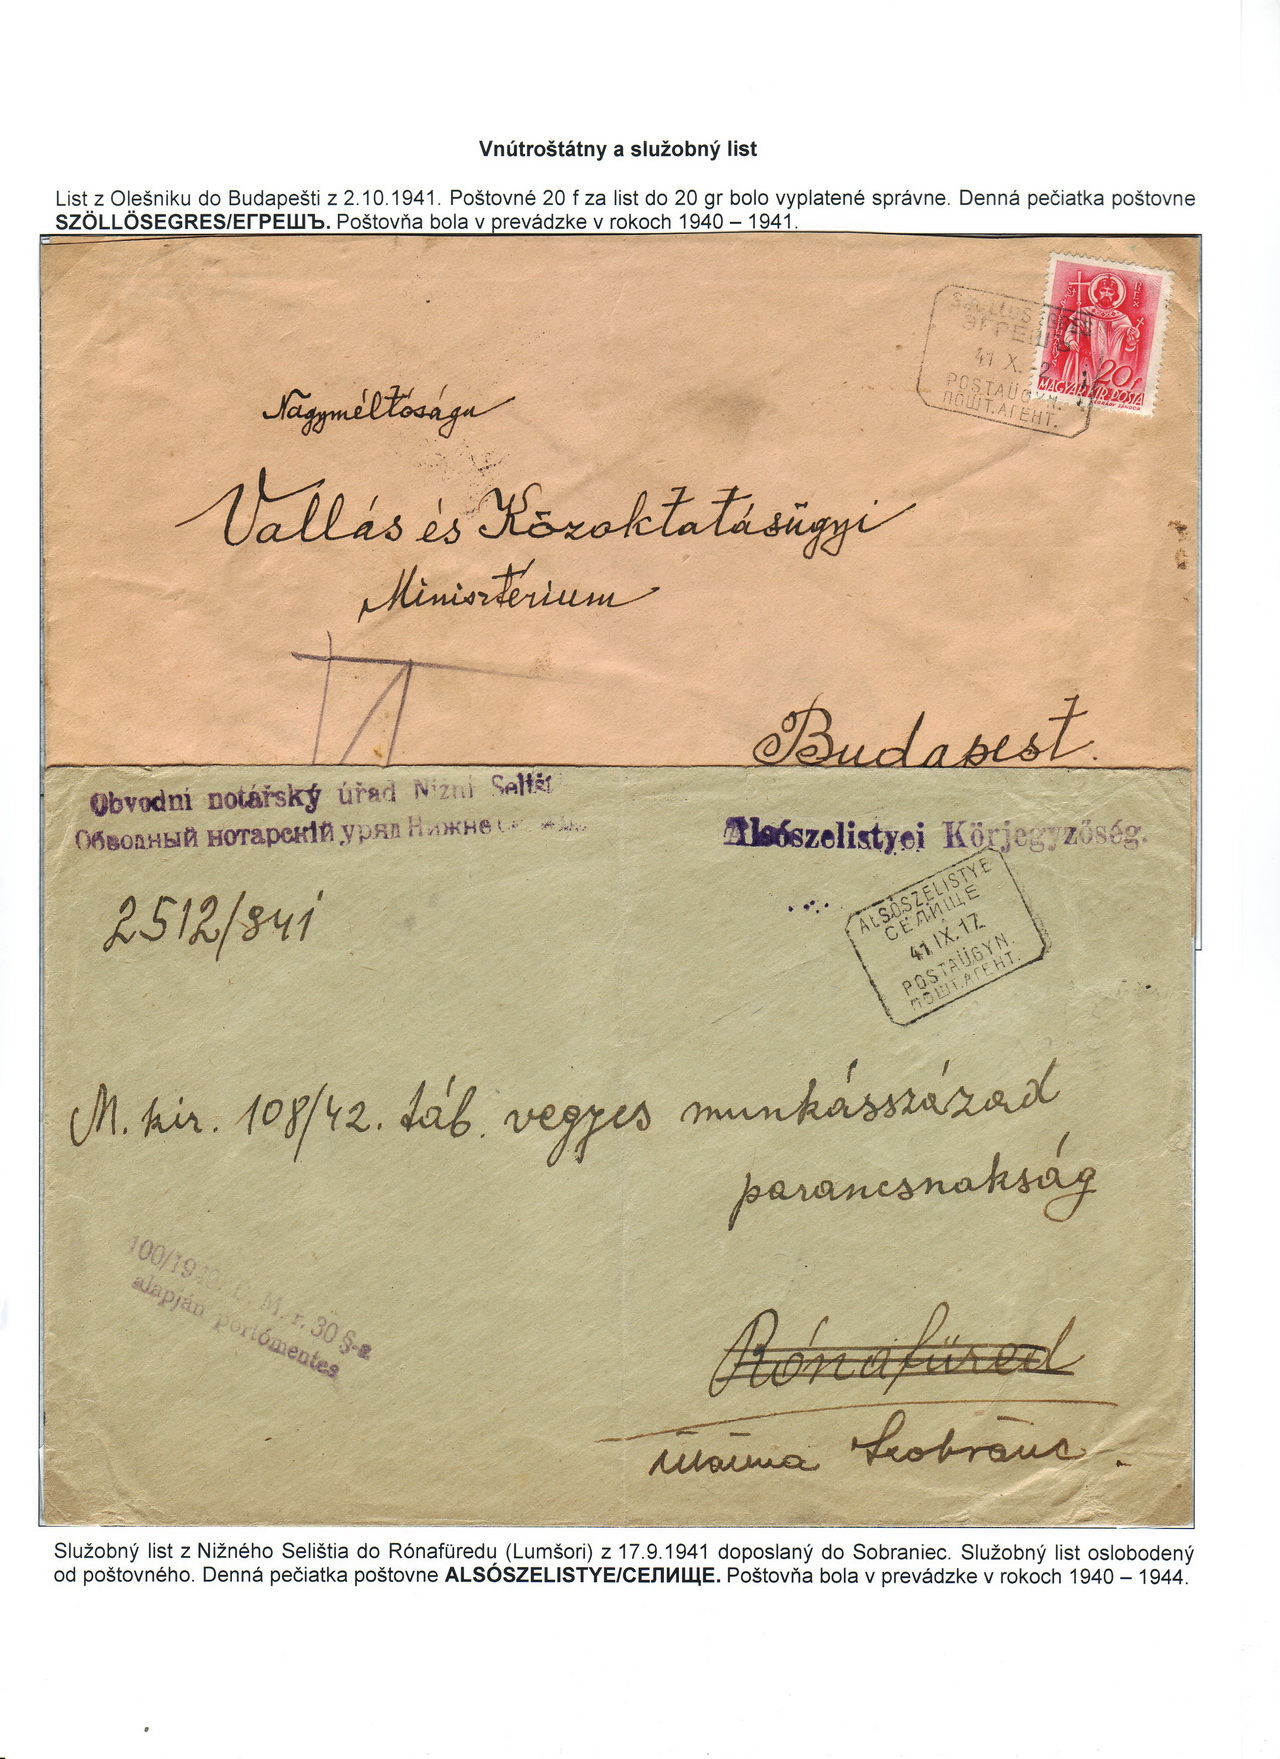 Vnútroštátny a služobný list
List z Olešniku do Budapešti z 2.10.1941. Poštovné 20 f za list do 20 gr bolo vyplatené správne. Denná pečiatka poštovne
SZÖLLÖSEGRES/ЕГРЕШЪ. Poštovňa bola v prevádzke v rokoch 1940 – 1941.
ЭГРЕШЪ
41 X. 2
POSTAÜGYN.
ПОШТ.АГЕНТ.
REX
20f
MAGYAR KIR. POSTA
Nagyméltóságu
Vallás és Közoktatásügyi
Minisztérium
Budapest.
Obvodní notářský úřad Nižní Selišt
Обводный нотарскій уряд Нижне
Alsószelistyei Körjegyzőség.
2512/941
ALSÓSZELISTYE
СЕЛИЩЕ
41 IX. 17.
POSTAÜGYN.
ПОШТ.АГЕНТ.
M. kir. 108/42. táb. vegyes munkásszázad
parancsnokság
100/1940. M. r. 30 §-a
alapján portómentes
Rónafüred
Szobránc
Služobný list z Nižného Selištia do Rónafüredu (Lumšori) z 17.9.1941 doposlaný do Sobraniec. Služobný list oslobodený
od poštovného. Denná pečiatka poštovne ALSÓSZELISTYE/СЕЛИЩЕ. Poštovňa bola v prevádzke v rokoch 1940 – 1944.